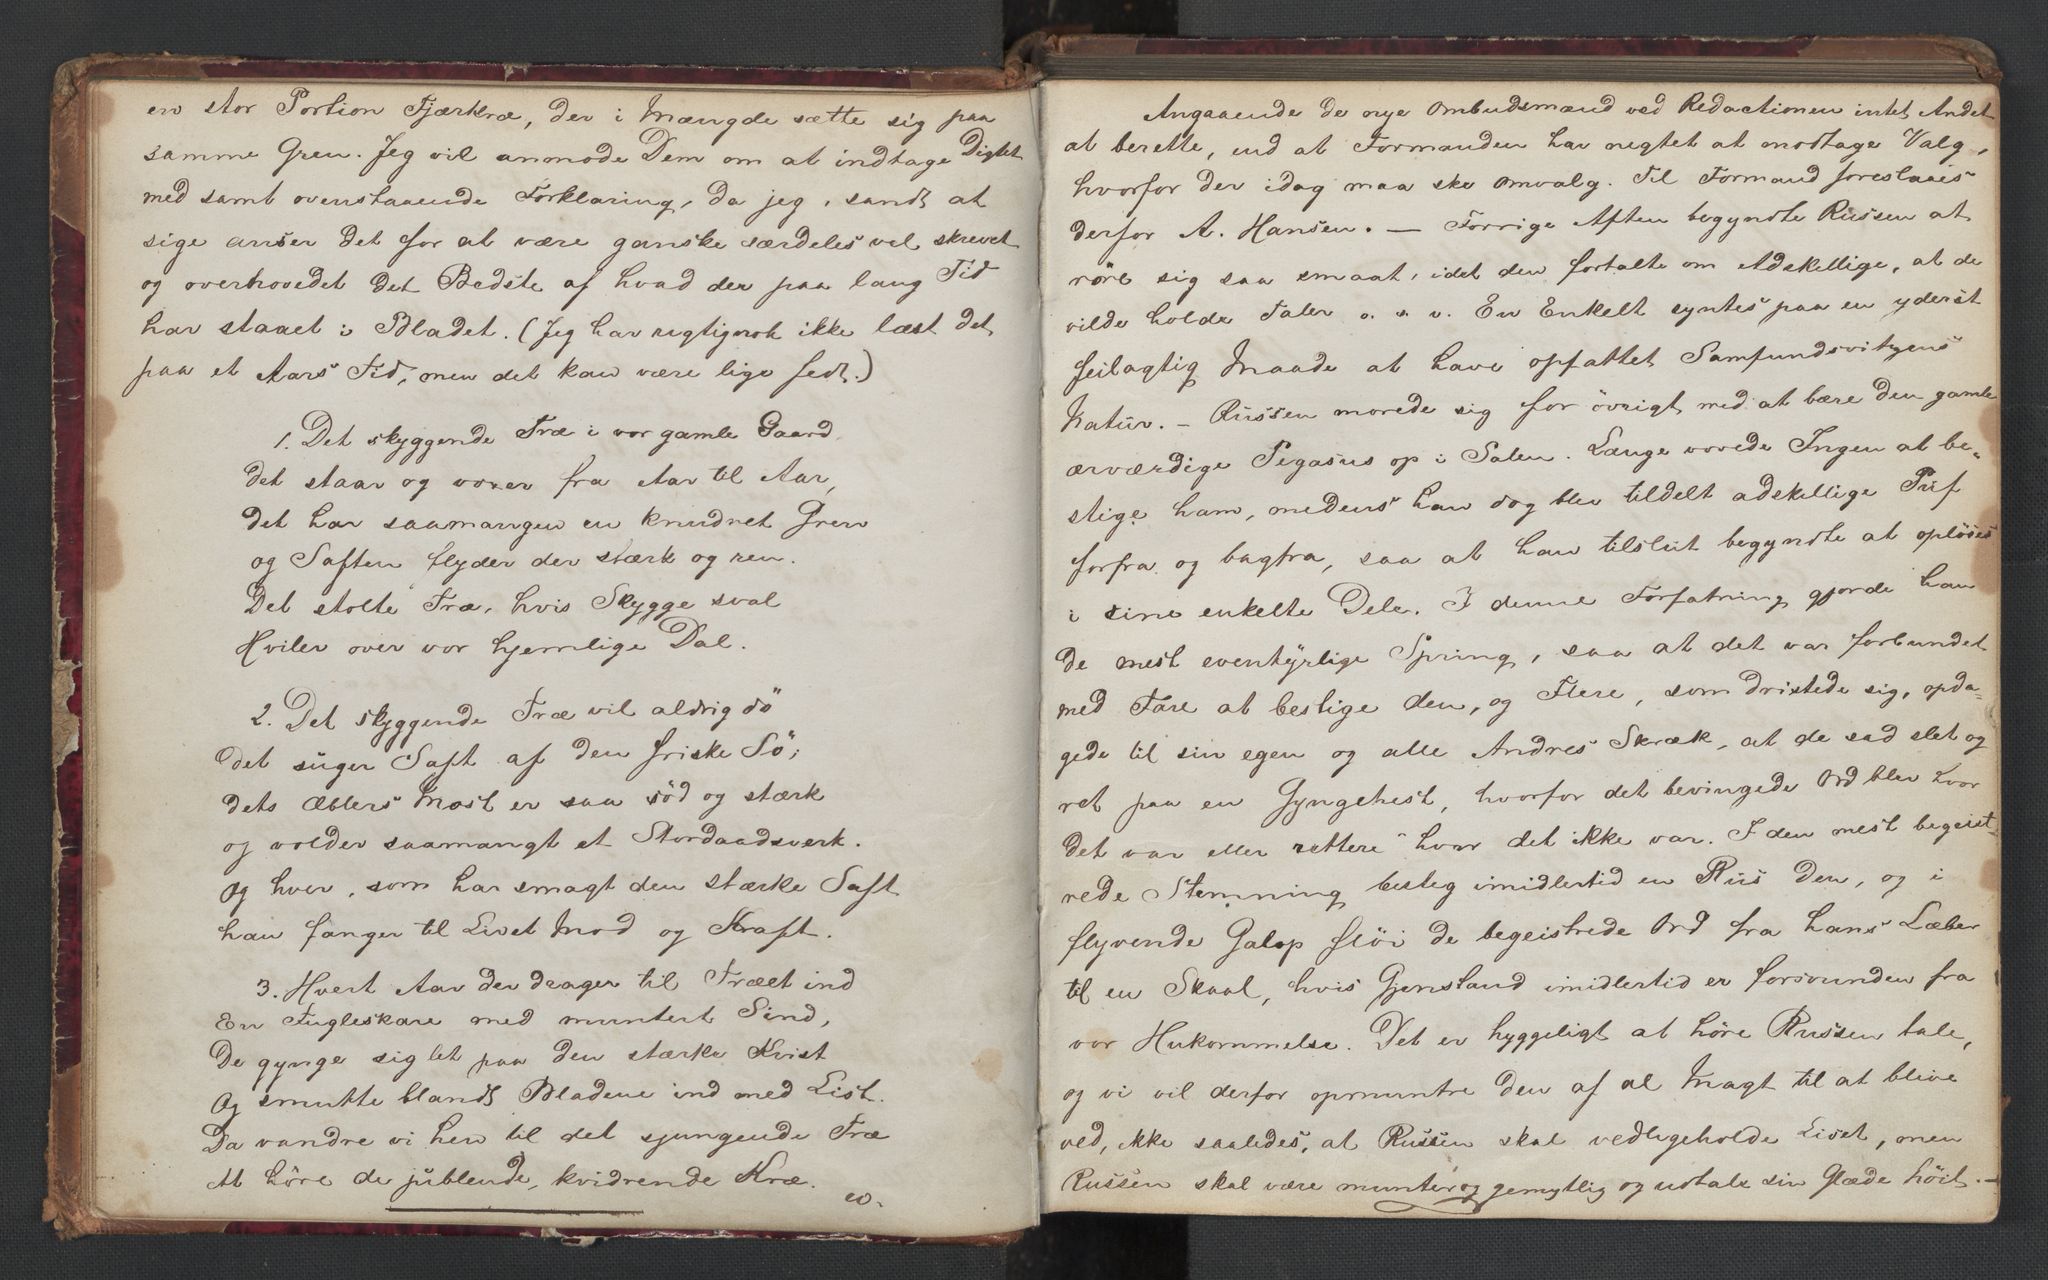 en stor Portion Fjærkræ, der i Mængde sætte sig paa
samme Gren. Jeg vil anmode Dem om at indtage Digtet
med samt ovenstaaende Forklaring, da jeg, sandt at
sige anser det for at være ganske særdeles vel skrevet
og overhovedet det Bedste af hvad der paa lang Tid
har staaet i Bladet. (Jeg har rigtignok ikke læst det
paa et Aars Tid, men det kan være lige fedt.)
1. Det skyggende Træ i vor gamle Gaard
det staar og voxer fra Aar til Aar,
det har saamangen en knudret Gren
og Saften flyder der stærk og ren.
Det stolte Træ, hvis Skygge sval
Hviler over vor hjemlige Dal.
2. Det skyggende Træ vil aldrig dö
det suger Saft af den friske Sö;
dets Æblers Most er saa söd og stærk
og volder saamangt et Stordaadsverk.
Og hver, som har smagt den stærke Saft
han fanger til Livet Mod og Kraft.
3. Hvert Aar der drager til Træet ind
En Fugleskare med muntert Sind,
De gynge sig let paa den stærke Kvist
Og smutte blandt Bladene ind med List.
Da vandre vi hen til det sjungende Træ
At höre de jublende, kvidrende Kræ.
ω.
Angaaende de nye Ombudsmænd ved Redactionen intet Andet
at berette, end at Formanden har negtet at modtage Valg,
hvorfor der idag maa ske Omvalg. Til Formand foreslaaes
derfor A. Hansen. — Forrige Aften begyndte Russen at
röre sig saa smaat, idet den fortalte om Adskillige, at de
vilde holde Taler o. s. v. En Enkelt syntes paa en yderst
feilagtig Maade at have opfattet Samfundsvitzens
Natur. — Russen morede sig for övrigt med at bære den gamle
ærværdige Pegasus op i Salen. Længe vovede Ingen at be-
stige ham, medens han dog blev tildelt adskillige Puf
forfra og bagfra, saa at han tilslut begyndte at oplöses
i sine enkelte Dele. I denne Forfatning gjorde han
de mest eventyrlige Spring, saa at det var forbundet
med Fare at bestige den, og Flere, som dristede sig, opda-
gede til sin egen og alle Andres Skræk, at de sad slet og
ret paa en Gyngehest, hvorfor det bevingede Ord blev hvor
det var eller rettere hvor det ikke var. I den mest begeist-
rede Stemning besteg imidlertid en Rus den, og i
flyvende Galop flöi de begeistrede Ord fra hans Læber
til en Skaal, hvis Gjenstand imidlertid er forsvunden fra
vor Hukommelse. Det er hyggeligt at höre Russen tale,
og vi vil derfor opmuntre den af al Magt til at blive
ved, ikke saaledes, at Russen skal vedligeholde Livet, men
Russen skal være munter og gemytlig og udtale sin Glæde höit. —